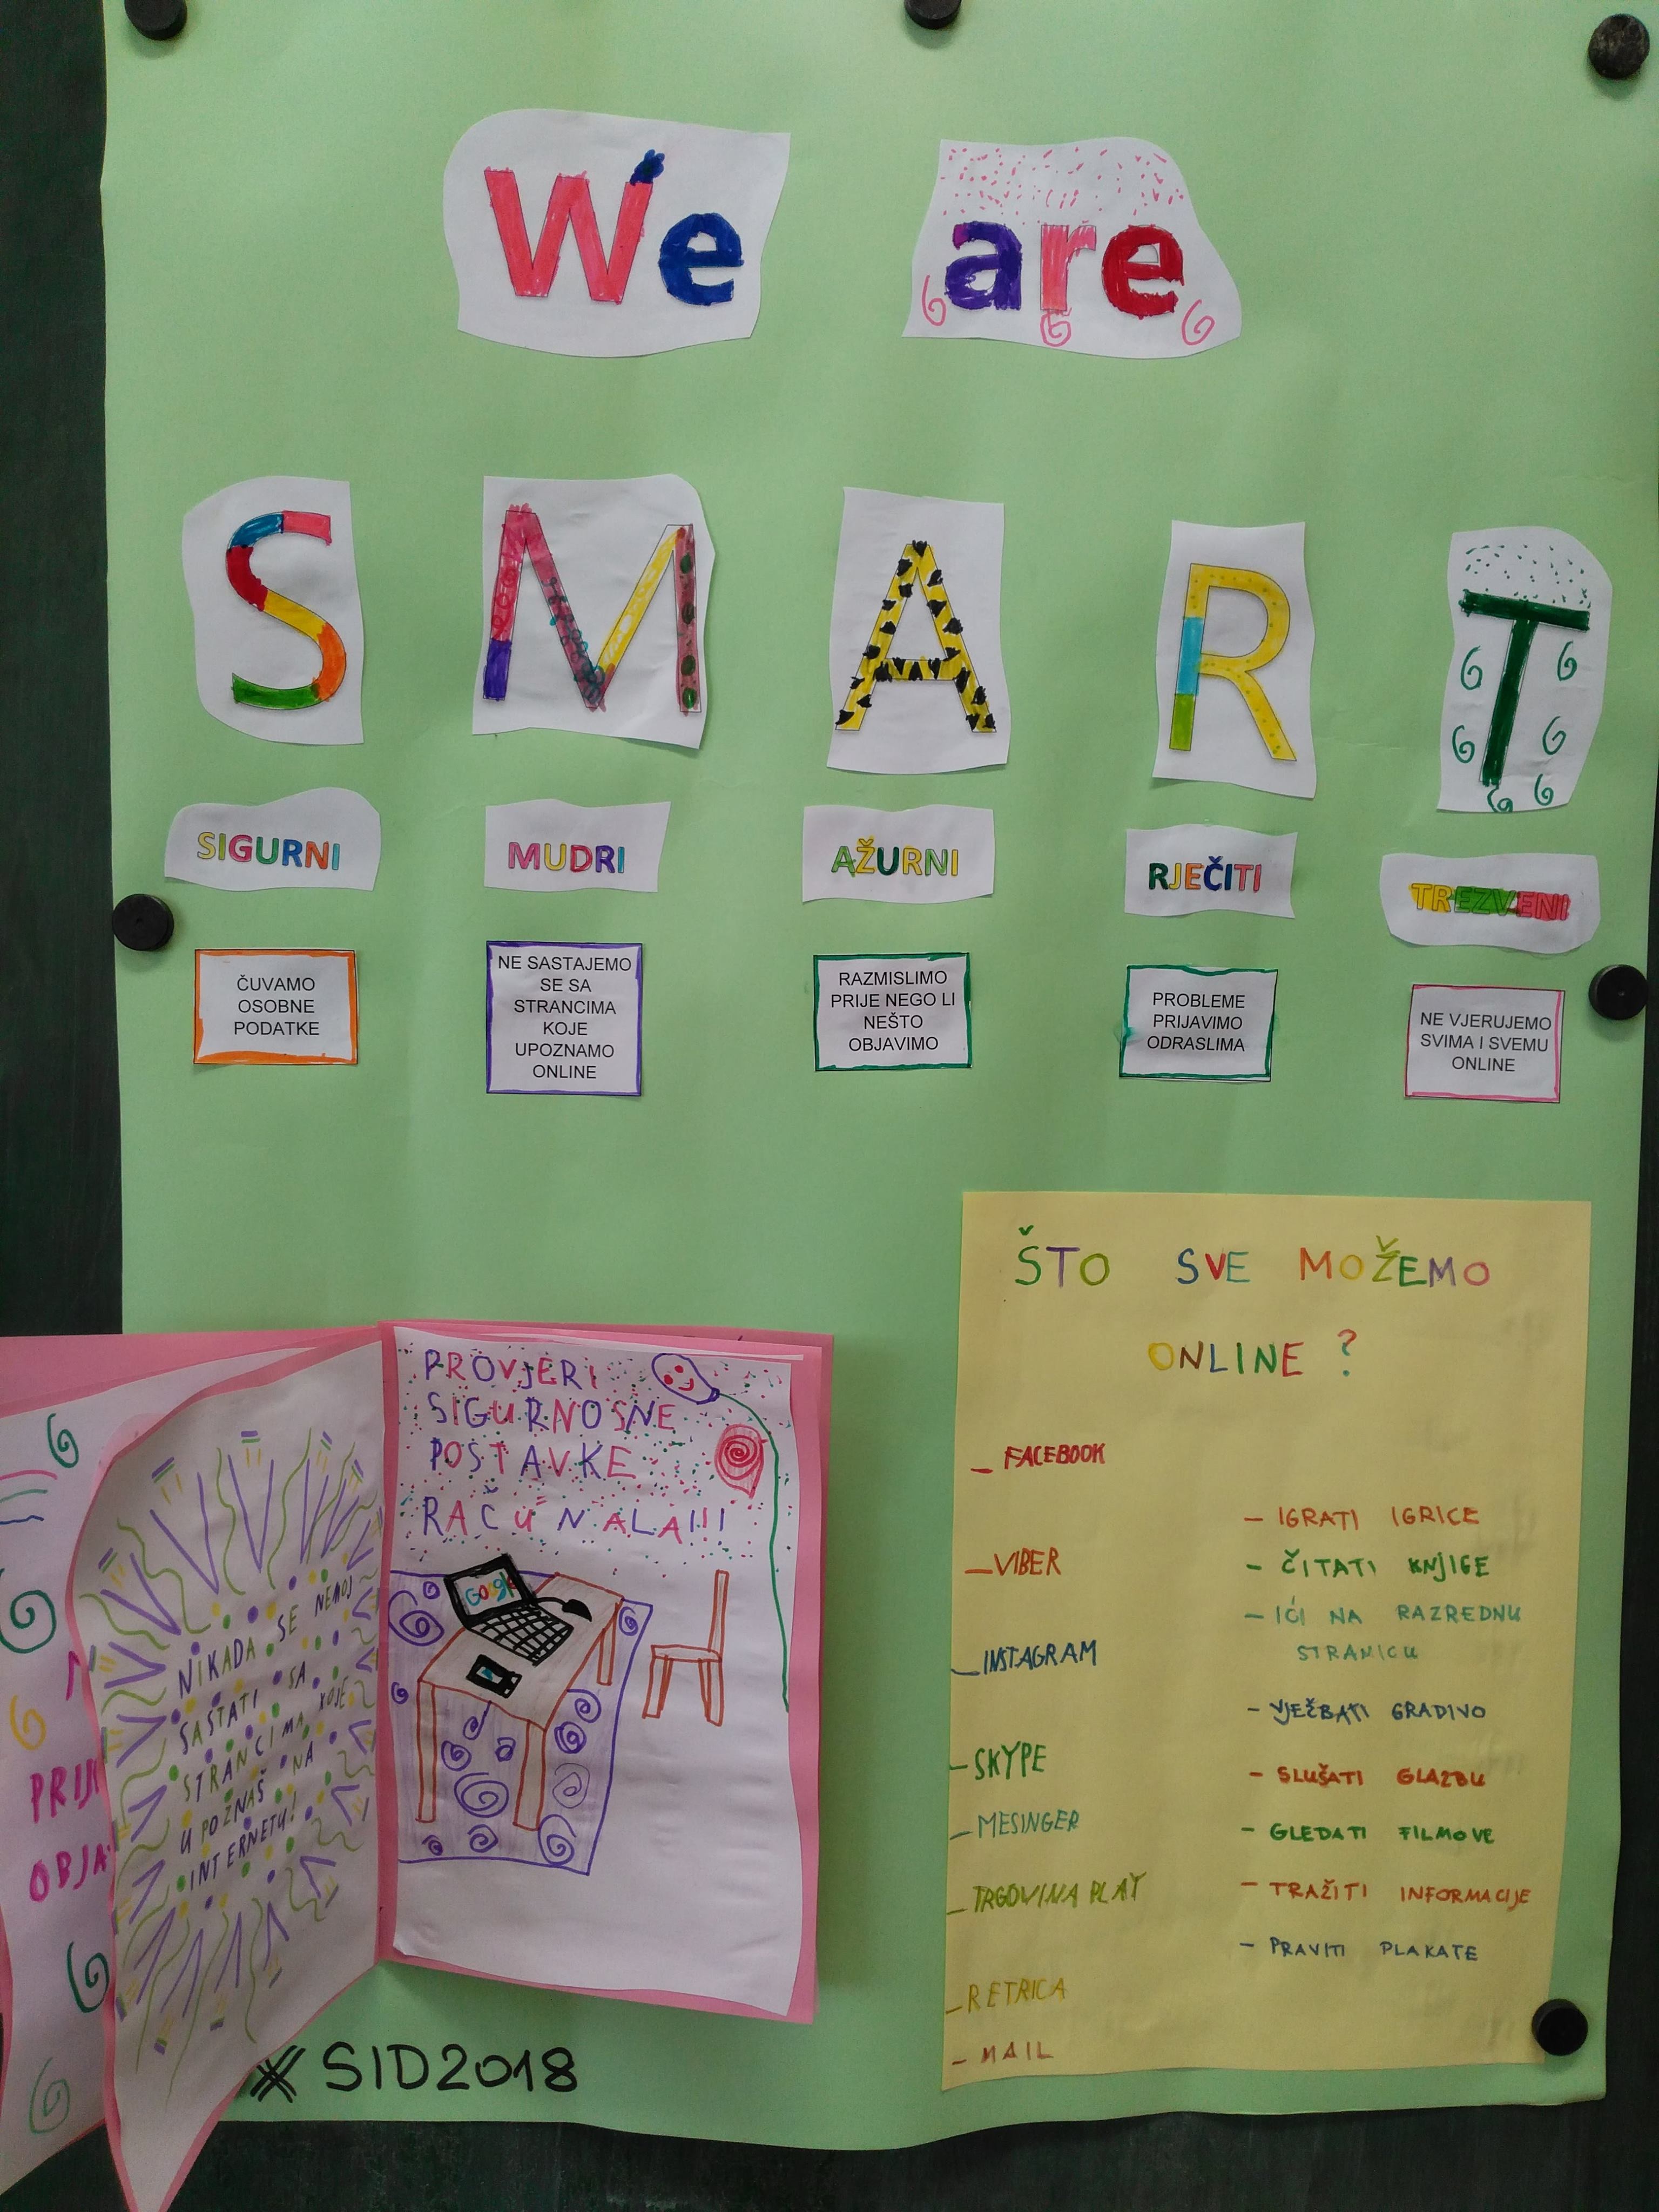 We are
S M A R T
SIGURNI
MUDRI
AŽURNI
RJEČITI
TREZVENI
ČUVAMO
OSOBNE
PODATKE
NE SASTAJEMO
SE SA
STRANCIMA
KOJE
UPOZNAMO
ONLINE
RAZMISLIMO
PRIJE NEGO LI
NEŠTO
OBJAVIMO
PROBLEME
PRIJAVIMO
ODRASLIMA
NE VJERUJEMO
SVIMA I SVEMU
ONLINE
NIKADA SE NEMOJ
SASTATI SA
STRANCIMA KOJE
UPOZNAŠ NA
INTERNETU!
PROVJERI
SIGURNOSNE
POSTAVKE
RAČUNALA!!!
Google
#SID2018
ŠTO SVE MOŽEMO
ONLINE ?
- FACEBOOK
- VIBER
- INSTAGRAM
- SKYPE
- MESINGER
- TRGOVINA PLAY
- RETRICA
- MAIL
- IGRATI IGRICE
- ČITATI KNJIGE
- IĆI NA RAZREDNU
STRANICU
- VJEŽBATI GRADIVO
- SLUŠATI GLAZBU
- GLEDATI FILMOVE
- TRAŽITI INFORMACIJE
- PRAVITI PLAKATE